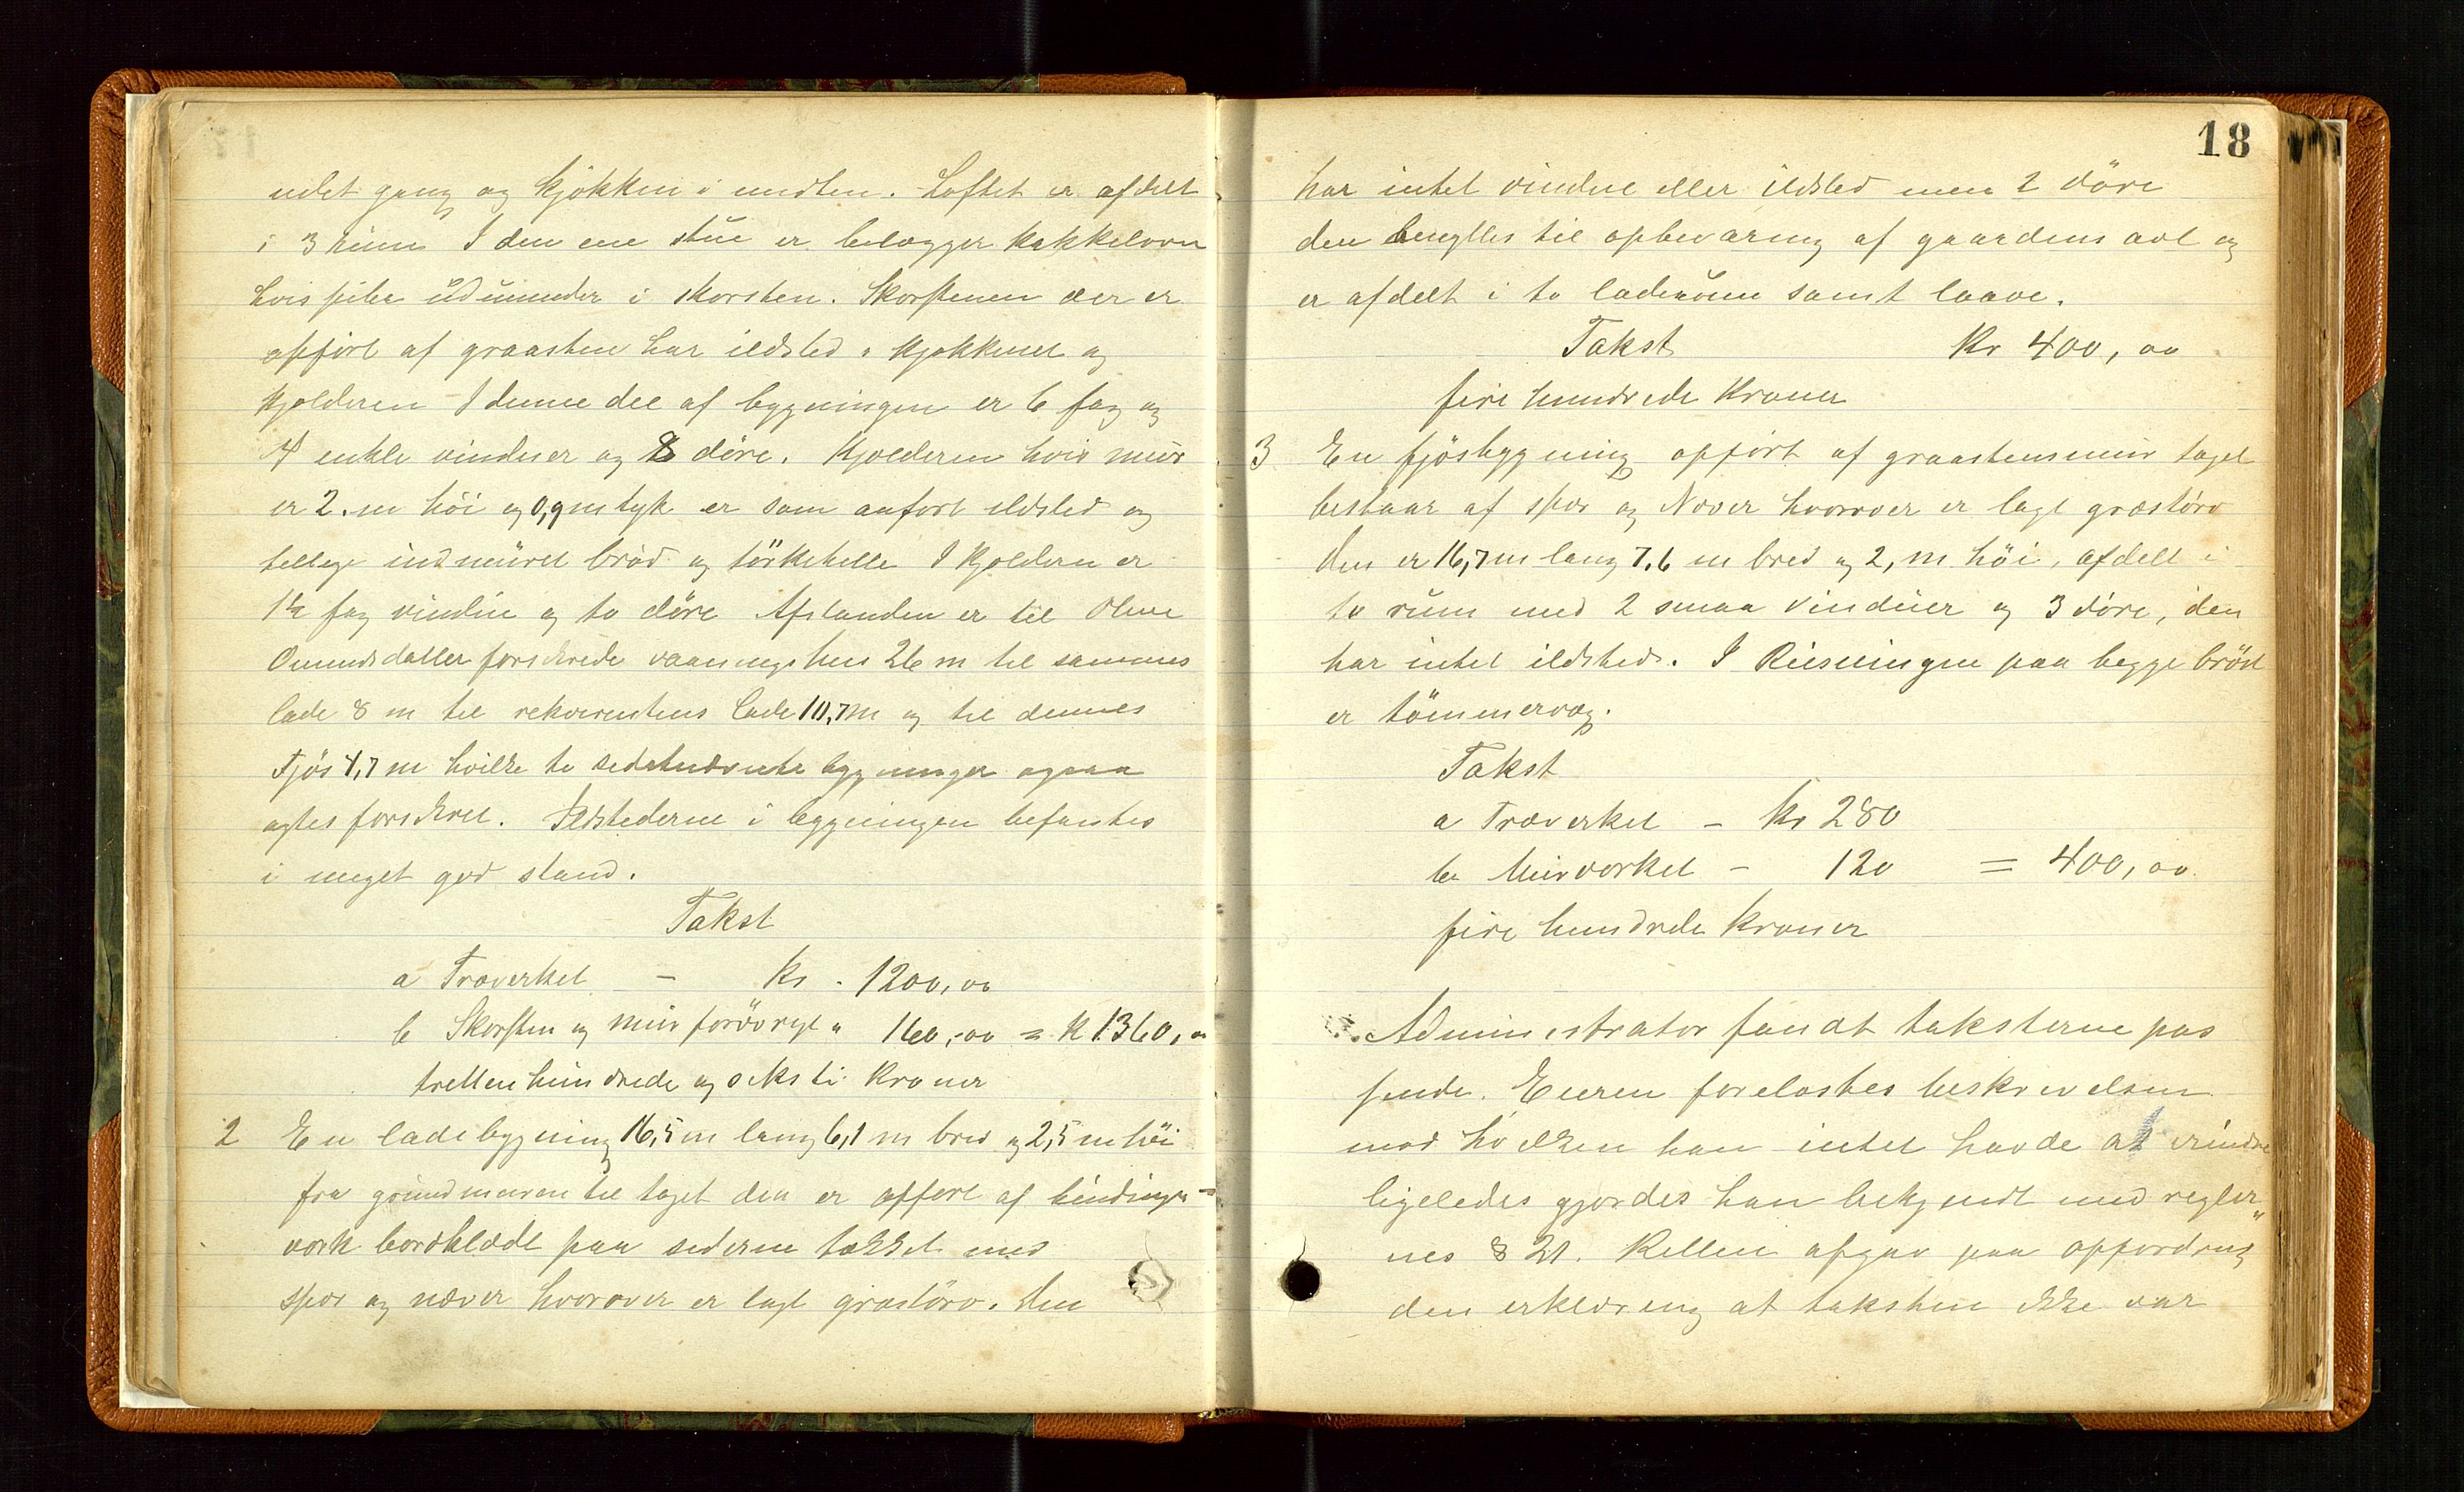 udet gang og kjökken i midten. Loftet er afdelt
i 3 rum I den ene stue er belægger kakkelovn
hvis piber udmunder i skorsten. Skorstenen der er
opfört af graasten har ildsted i kjøkkenet og
kjelderen I denne del af bygningen er 6 fag og
4 enkle vinduer og 8 döre. Kjelderen hvis mur
er 2. m höi og 0,9 m tyk er som anfört ildsted og
tillige indmuret bröd og törkehelle I kjelderen er
1½ fag vindue og to döre Afstanden er til Oline
Omundsdatter forsikrede vaaningshus 26 m til sammes
lade 8 m til rekvirentens lade 10,7 m og til dennes
Fjös 4,7 m hvilke to sidstnævnte bygninger ogsaa
agtes forsikret. Ildstederne i bygningen befantes
i meget god stand.
Takst
a Træverket – Kr. 1200,00
b Skorsten og mur forövrigt " 160,00 = K 1360,00
trettenhundrede og seksti Kroner
2 En ladebygning 16,5 m lang 6,1 m bred og 2,5 m höi
fra grundmuren til taget den er opfört af bindings-
værk bordklædt paa siderne tækket med
spær og næver hvorover er lagt græstörv. Den
18
har intet vindue eller ildsted men 2 döre
den benyttes til opbevaring af gaardens avl og
er afdelt i to laderum samt laave.
Takst Kr 400,00
fire hundrede Kroner
3 En fjösbygning opfört af graastensmur taget
bestaar af spær og Næver hvorover er lagt græstörv
Den er 16,7 m lang 7,6 m bred og 2, m höi, afdelt i
to rum med 2 smaa vinduer og 3 döre, den
har intet ildsted. I Reisningen paa begge bröst
er tömmervæg.
Takst
a Træverket – Kr 280
b Murværket – 120 = 400,00.
fire hundrede Kroner
Administrator fandt taksterne pas
sende. Eieren forelæstes beskrivelsen
mod hvilken han intet havde at erindre
ligeledes gjordes han bekjendt med regler"
nes § 21. Retten afgav paa opfordring
den erklæring at taksten ikke var